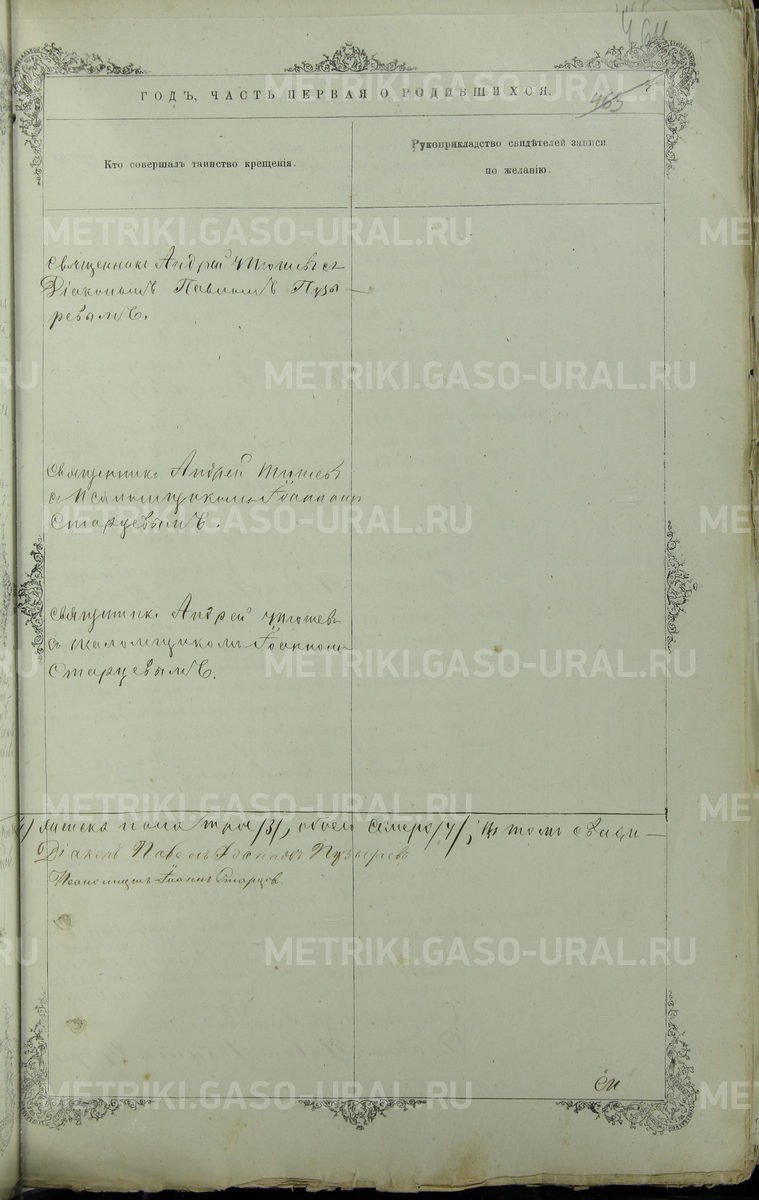 464
ГОДЪ, ЧАСТЬ ПЕРВАЯ О РОДИВШИХСЯ.
465
Кто совершалъ таинство крещенія.
Рукоприкладство свидѣтелей записи
по желанію.
Священникъ Андрей Тюшевъ съ
Діакономъ Павломъ Пузы-
ревымъ.
Священникъ Андрей Тюшевъ
съ Псаломщикомъ Іоанномъ
Старцевымъ.
Священникъ Андрей Тюшевъ
съ псаломщикомъ Іоанномъ
Старцевымъ.
женска пола трое /3/, обоего семеро /7/, въ томъ свиди-
Діаконъ Павелъ Пузыревъ
Псаломщикъ Іоаннъ Старцев.
METRIKI.GASO-URAL.RU